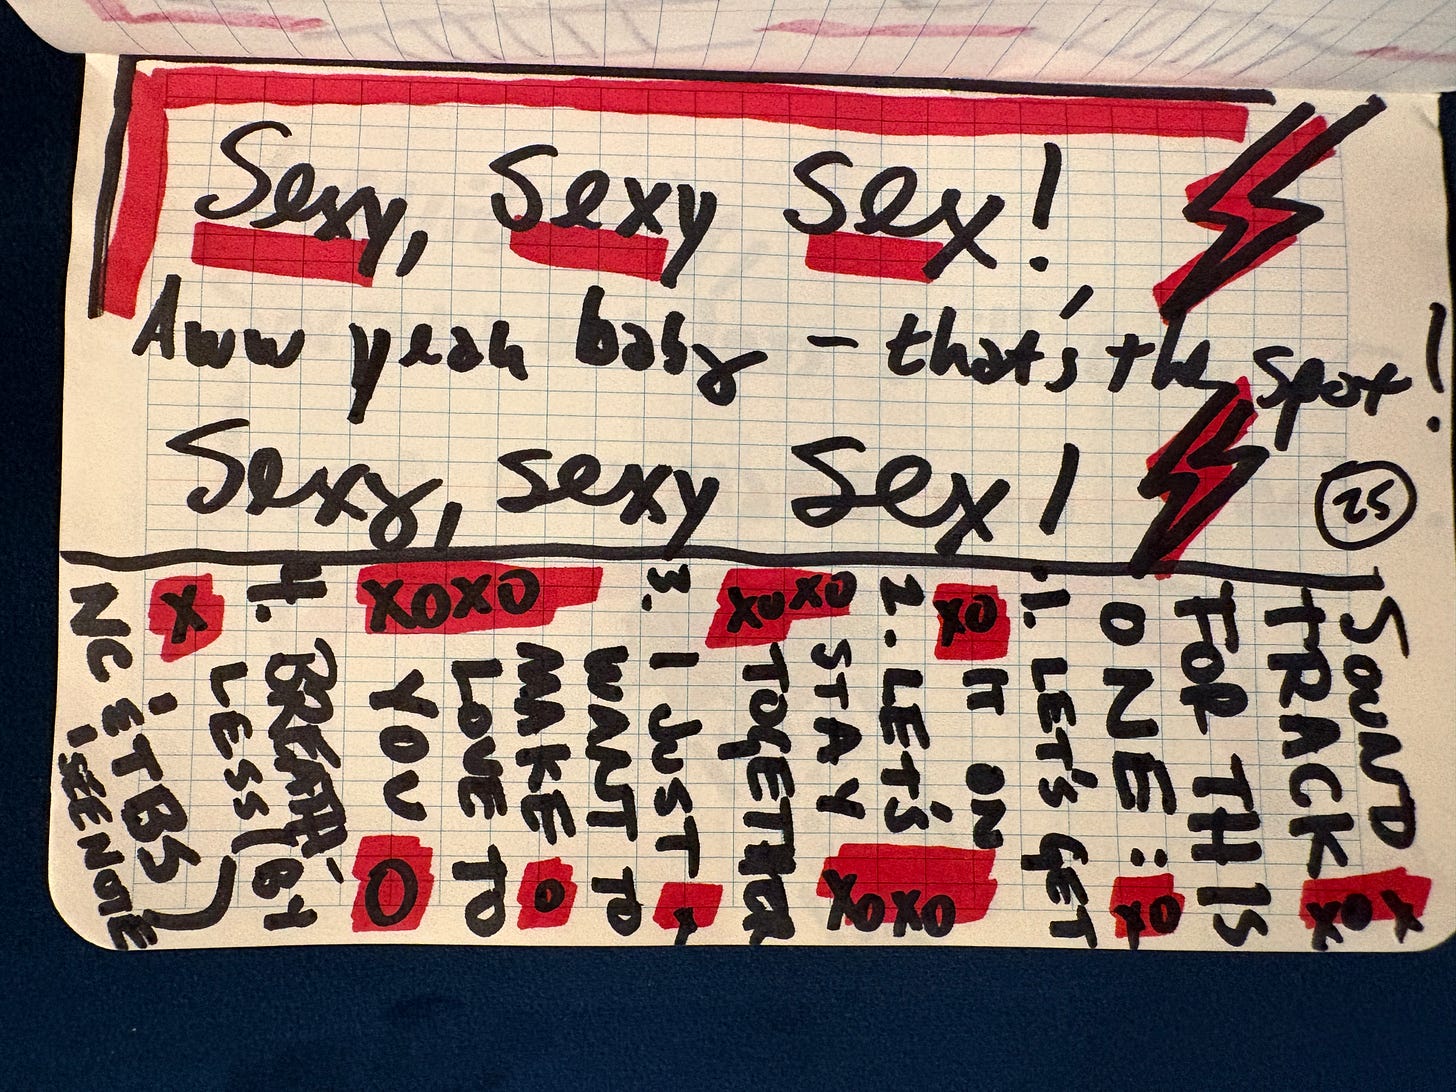 Sexy, Sexy Sex!
Aww yeah baby - that's the spot!
Sexy, sexy sex!
25
SOUND
TRACK
xoxx
FOR THIS
ONE:
xox
1. LET'S GET
IT ON
xo
xoxo
2. LET'S
STAY
TOGETHER
xoxo
3. I JUST
x
WANT TO
MAKE
o
LOVE TO
YOU
xoxo
O
4. BREATH-
LESS (BY
x
SEE NOTE